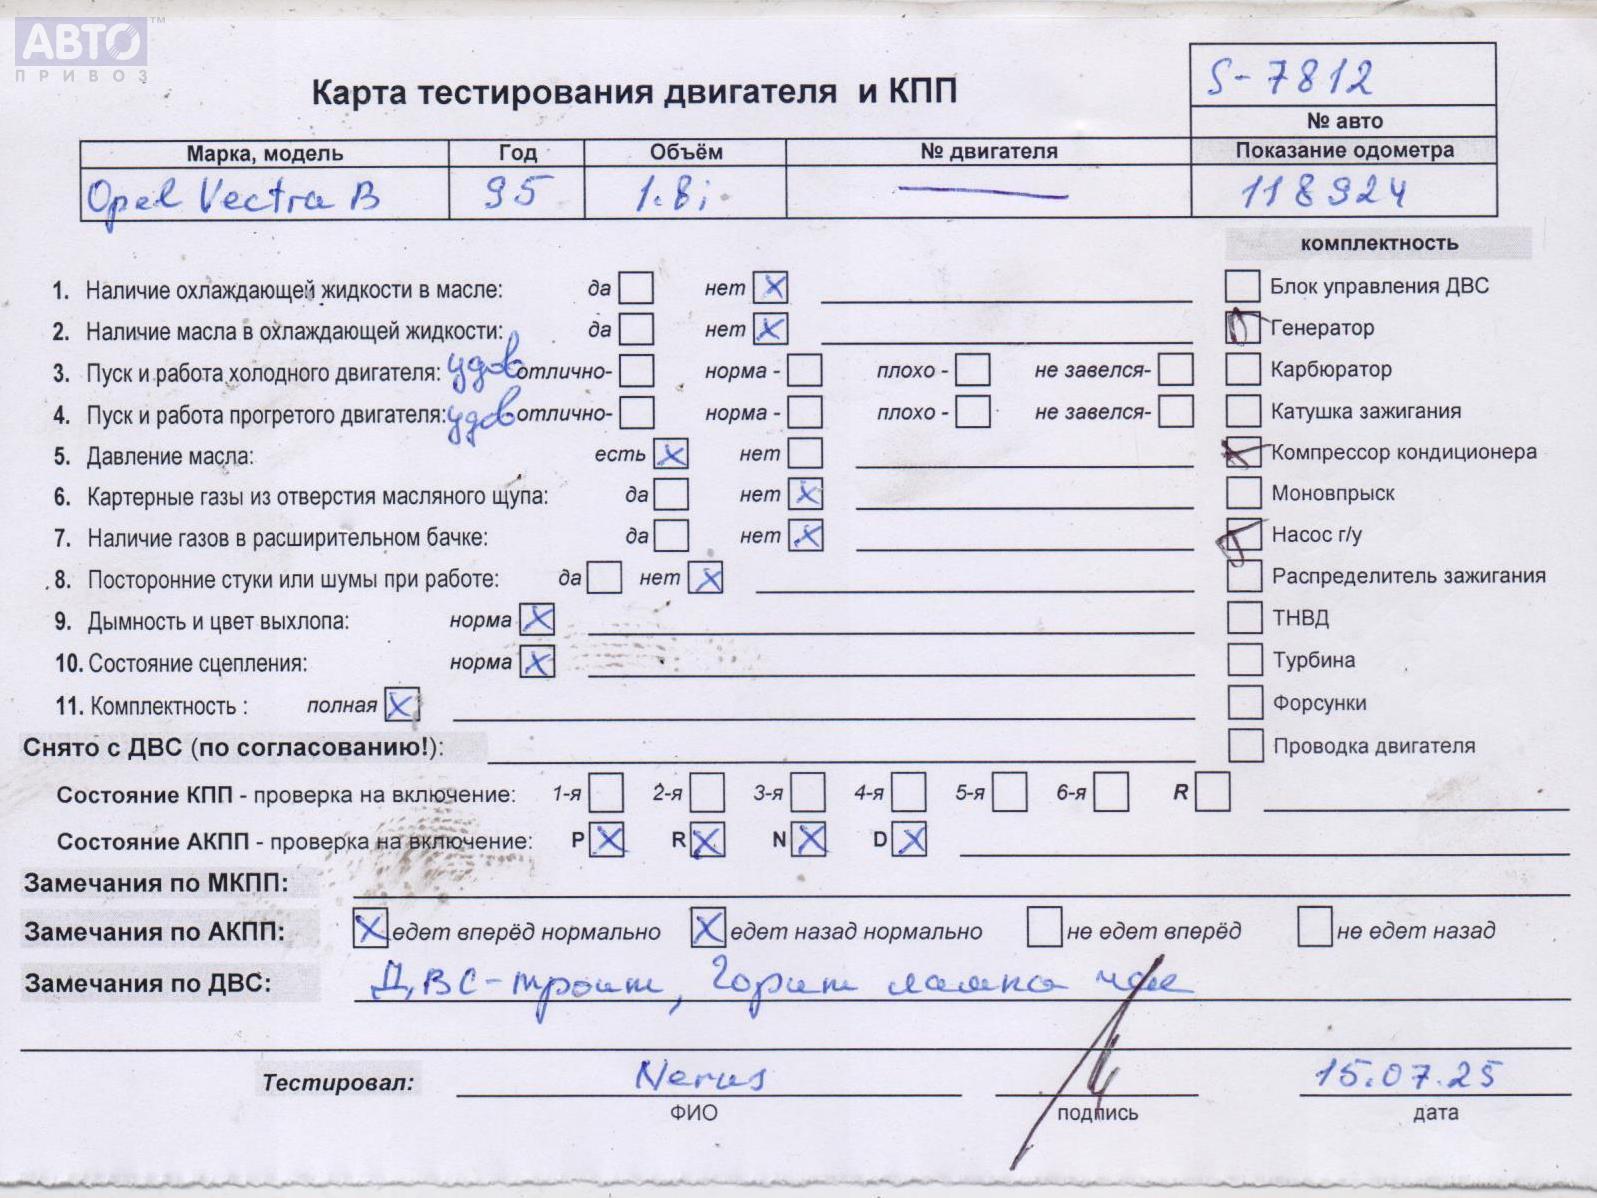 АВТО™
ПРИВОЗ
S-7812
Карта тестирования двигателя и КПП
№ авто
Марка, модель Год Объём № двигателя Показание одометра
Opel Vectra B 95 1.8i — 118924
комплектность
1. Наличие охлаждающей жидкости в масле: да нет X Блок управления ДВС
2. Наличие масла в охлаждающей жидкости: да нет X Генератор
3. Пуск и работа холодного двигателя: удов отлично- норма - плохо - не завелся- Карбюратор
4. Пуск и работа прогретого двигателя: удов отлично- норма - плохо - не завелся- Катушка зажигания
5. Давление масла: есть X нет Компрессор кондиционера
6. Картерные газы из отверстия масляного щупа: да нет X Моновпрыск
7. Наличие газов в расширительном бачке: да нет X Насос г/у
8. Посторонние стуки или шумы при работе: да нет X Распределитель зажигания
9. Дымность и цвет выхлопа: норма X ТНВД
10. Состояние сцепления: норма X Турбина
11. Комплектность : полная X Форсунки
Снято с ДВС (по согласованию!): Проводка двигателя
Состояние КПП - проверка на включение: 1-я 2-я 3-я 4-я 5-я 6-я R
Состояние АКПП - проверка на включение: P X R X N X D X
Замечания по МКПП:
Замечания по АКПП: X едет вперёд нормально X едет назад нормально не едет вперёд не едет назад
Замечания по ДВС: ДВС-троит, Горит лампа чек
Тестировал: 15.07.25
ФИО подпись дата